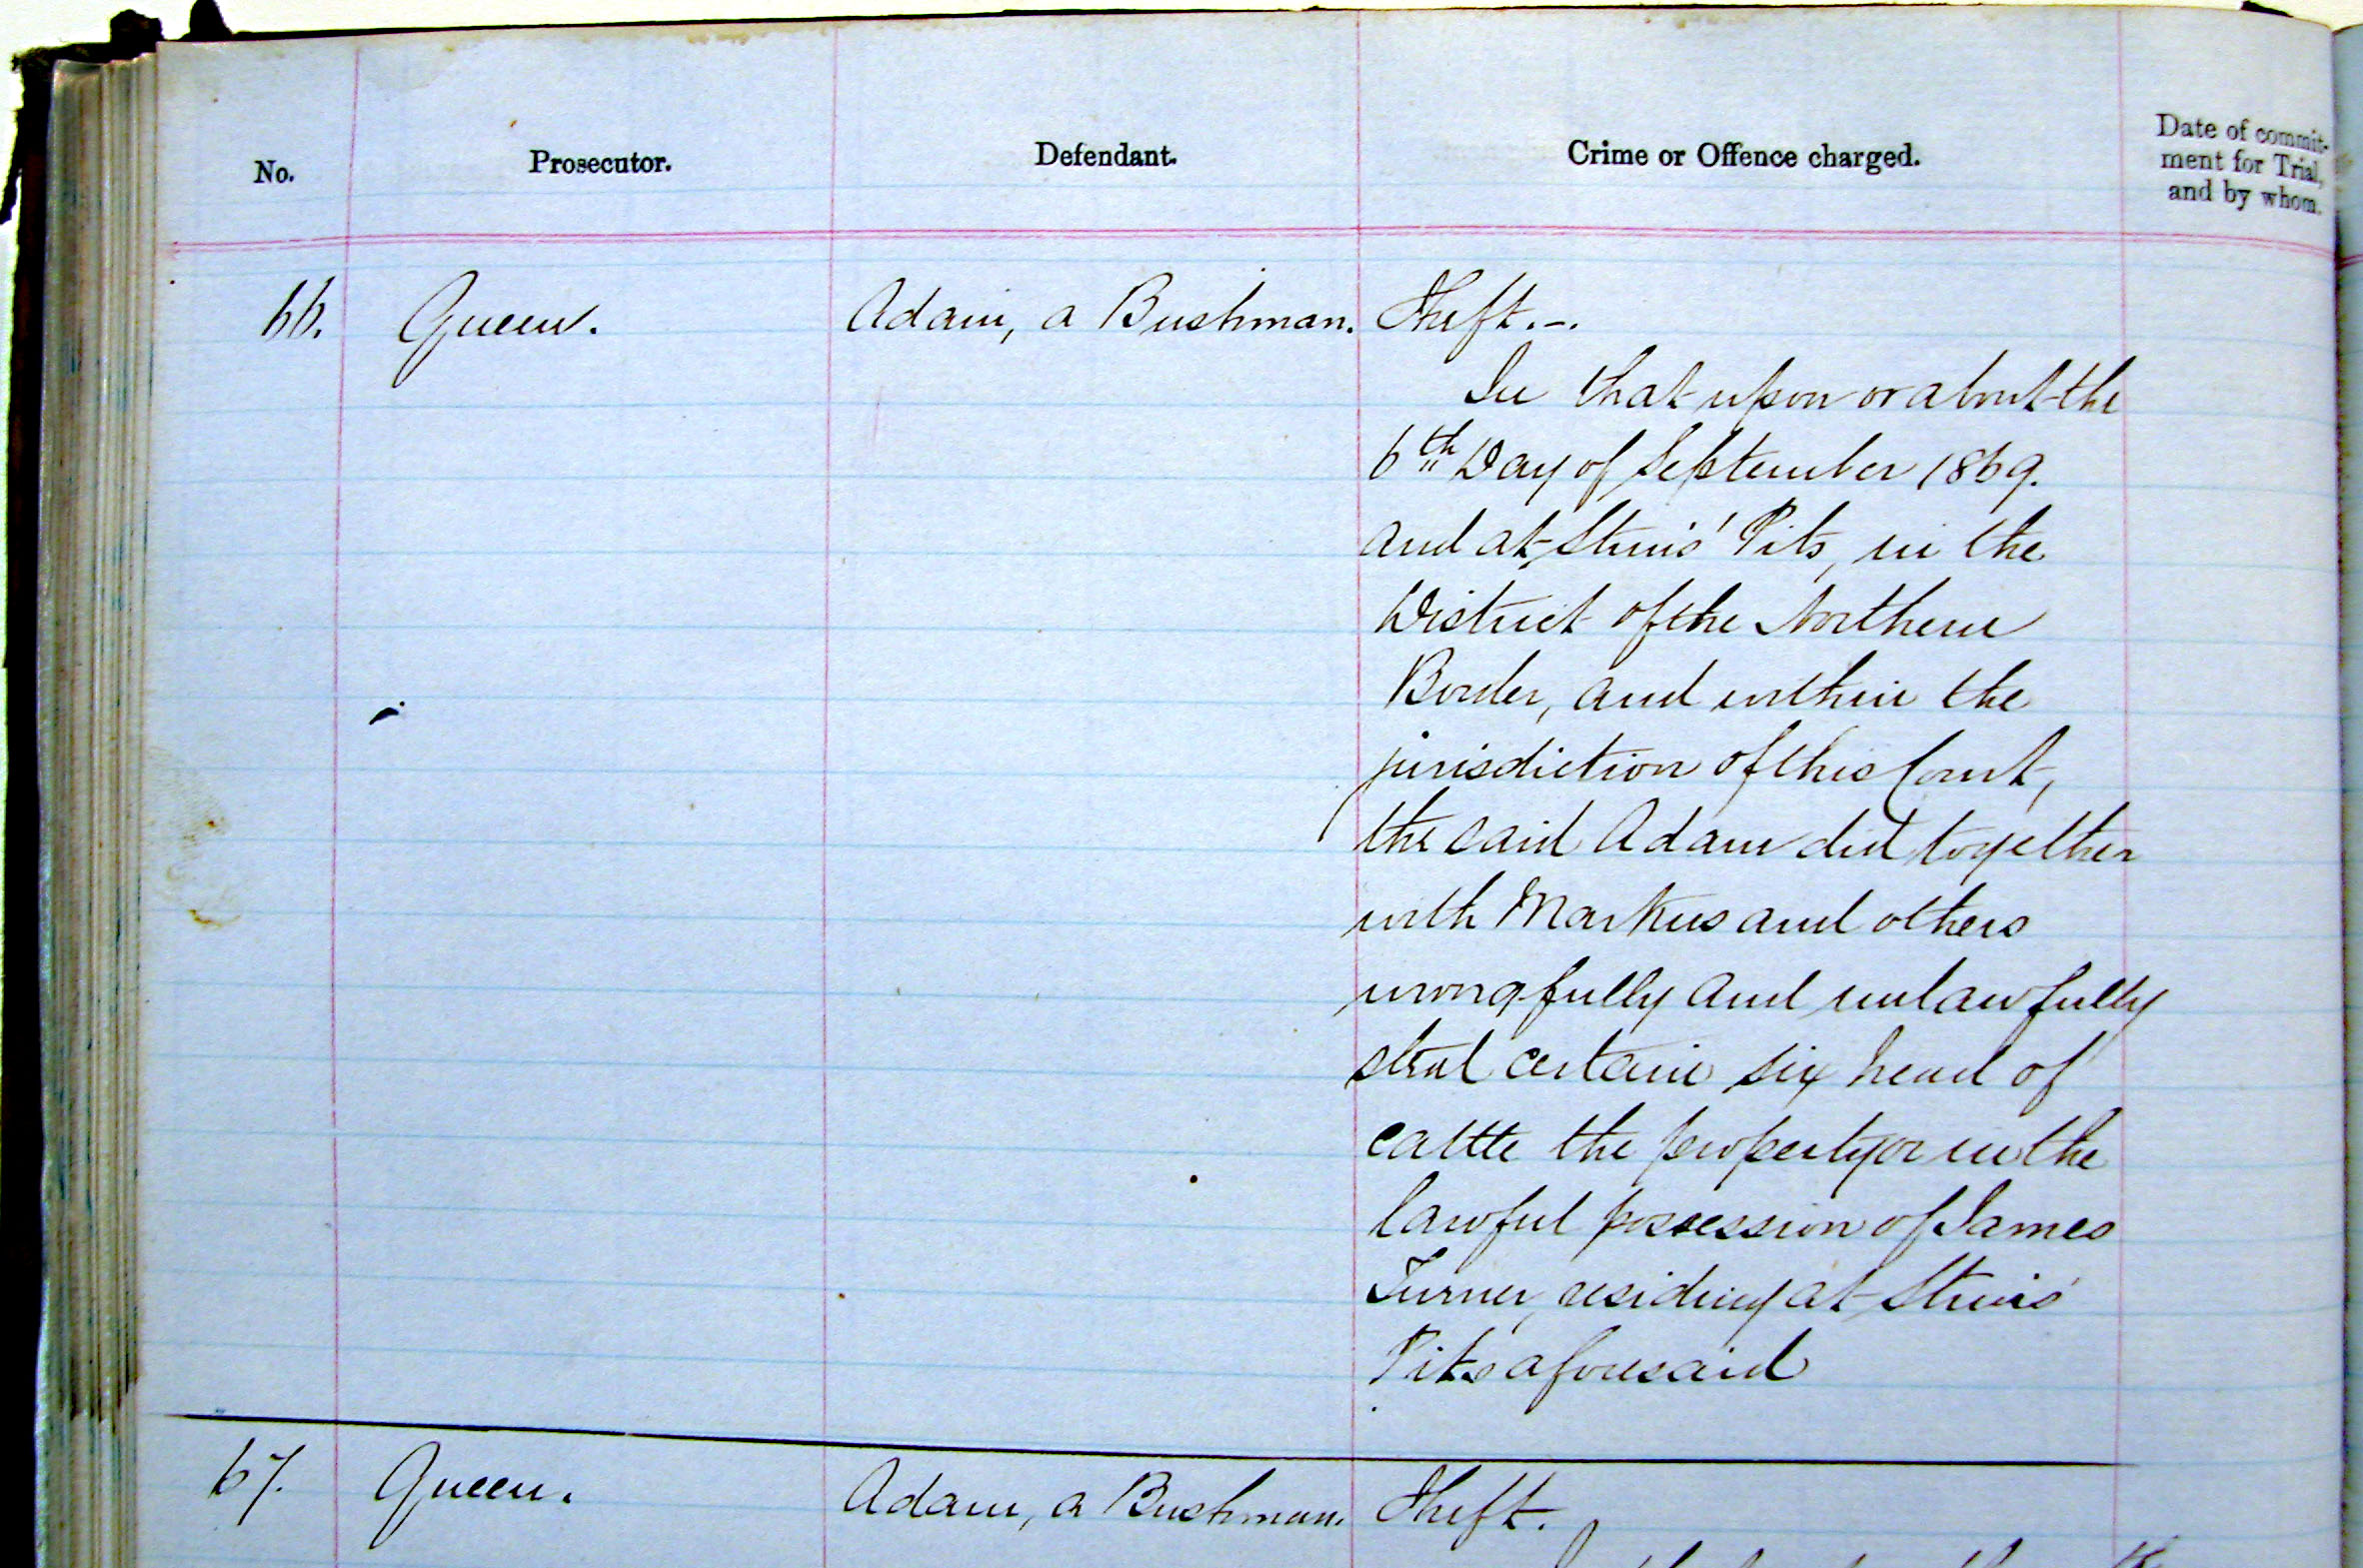 No.
Prosecutor.
Defendant.
Crime or Offence charged.
Date of commit-
ment for Trial,
and by whom.
66. Queen. Adam, a Bushman. Theft.-.
In that upon or about the
6th Day of September 1869.
and at Pits, in the
District of the Northern
Border, and within the
jurisdiction of this Court,
the said Adam did together
with Markus and others
wrongfully and unlawfully
steal certain six head of
cattle the property or in the
lawful possession of James
Turner, residing at
Pits aforesaid
67. Queen. Adam, a Bushman. Theft.